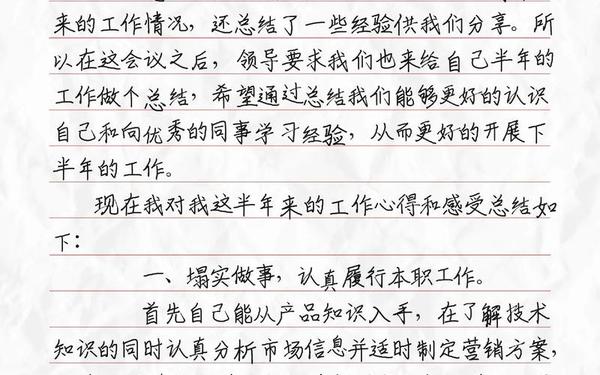 来的工作情况，还总结了一些经验供我们分享。所
以在这会议之后，领导要求我们也来给自己半年的
工作做个总结，希望通过总结我们能够更好的认识
自己和向优秀的同事学习经验，从而更好的开展下
半年的工作。
现在我对我这半年来的工作心得和感受总结如
下：
一、塌实做事，认真履行本职工作。
首先自己能从产品知识入手，在了解技术
知识的同时认真分析市场信息并适时制定营销方案，